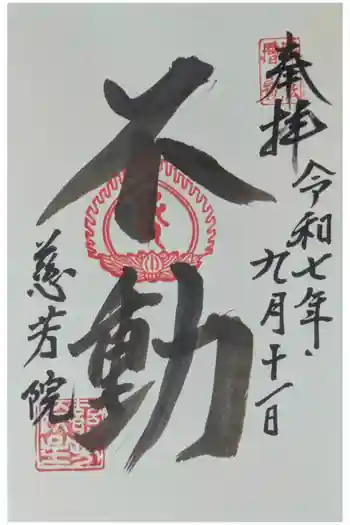 奉拝
令和七年九月十一日
不動
慈芳院